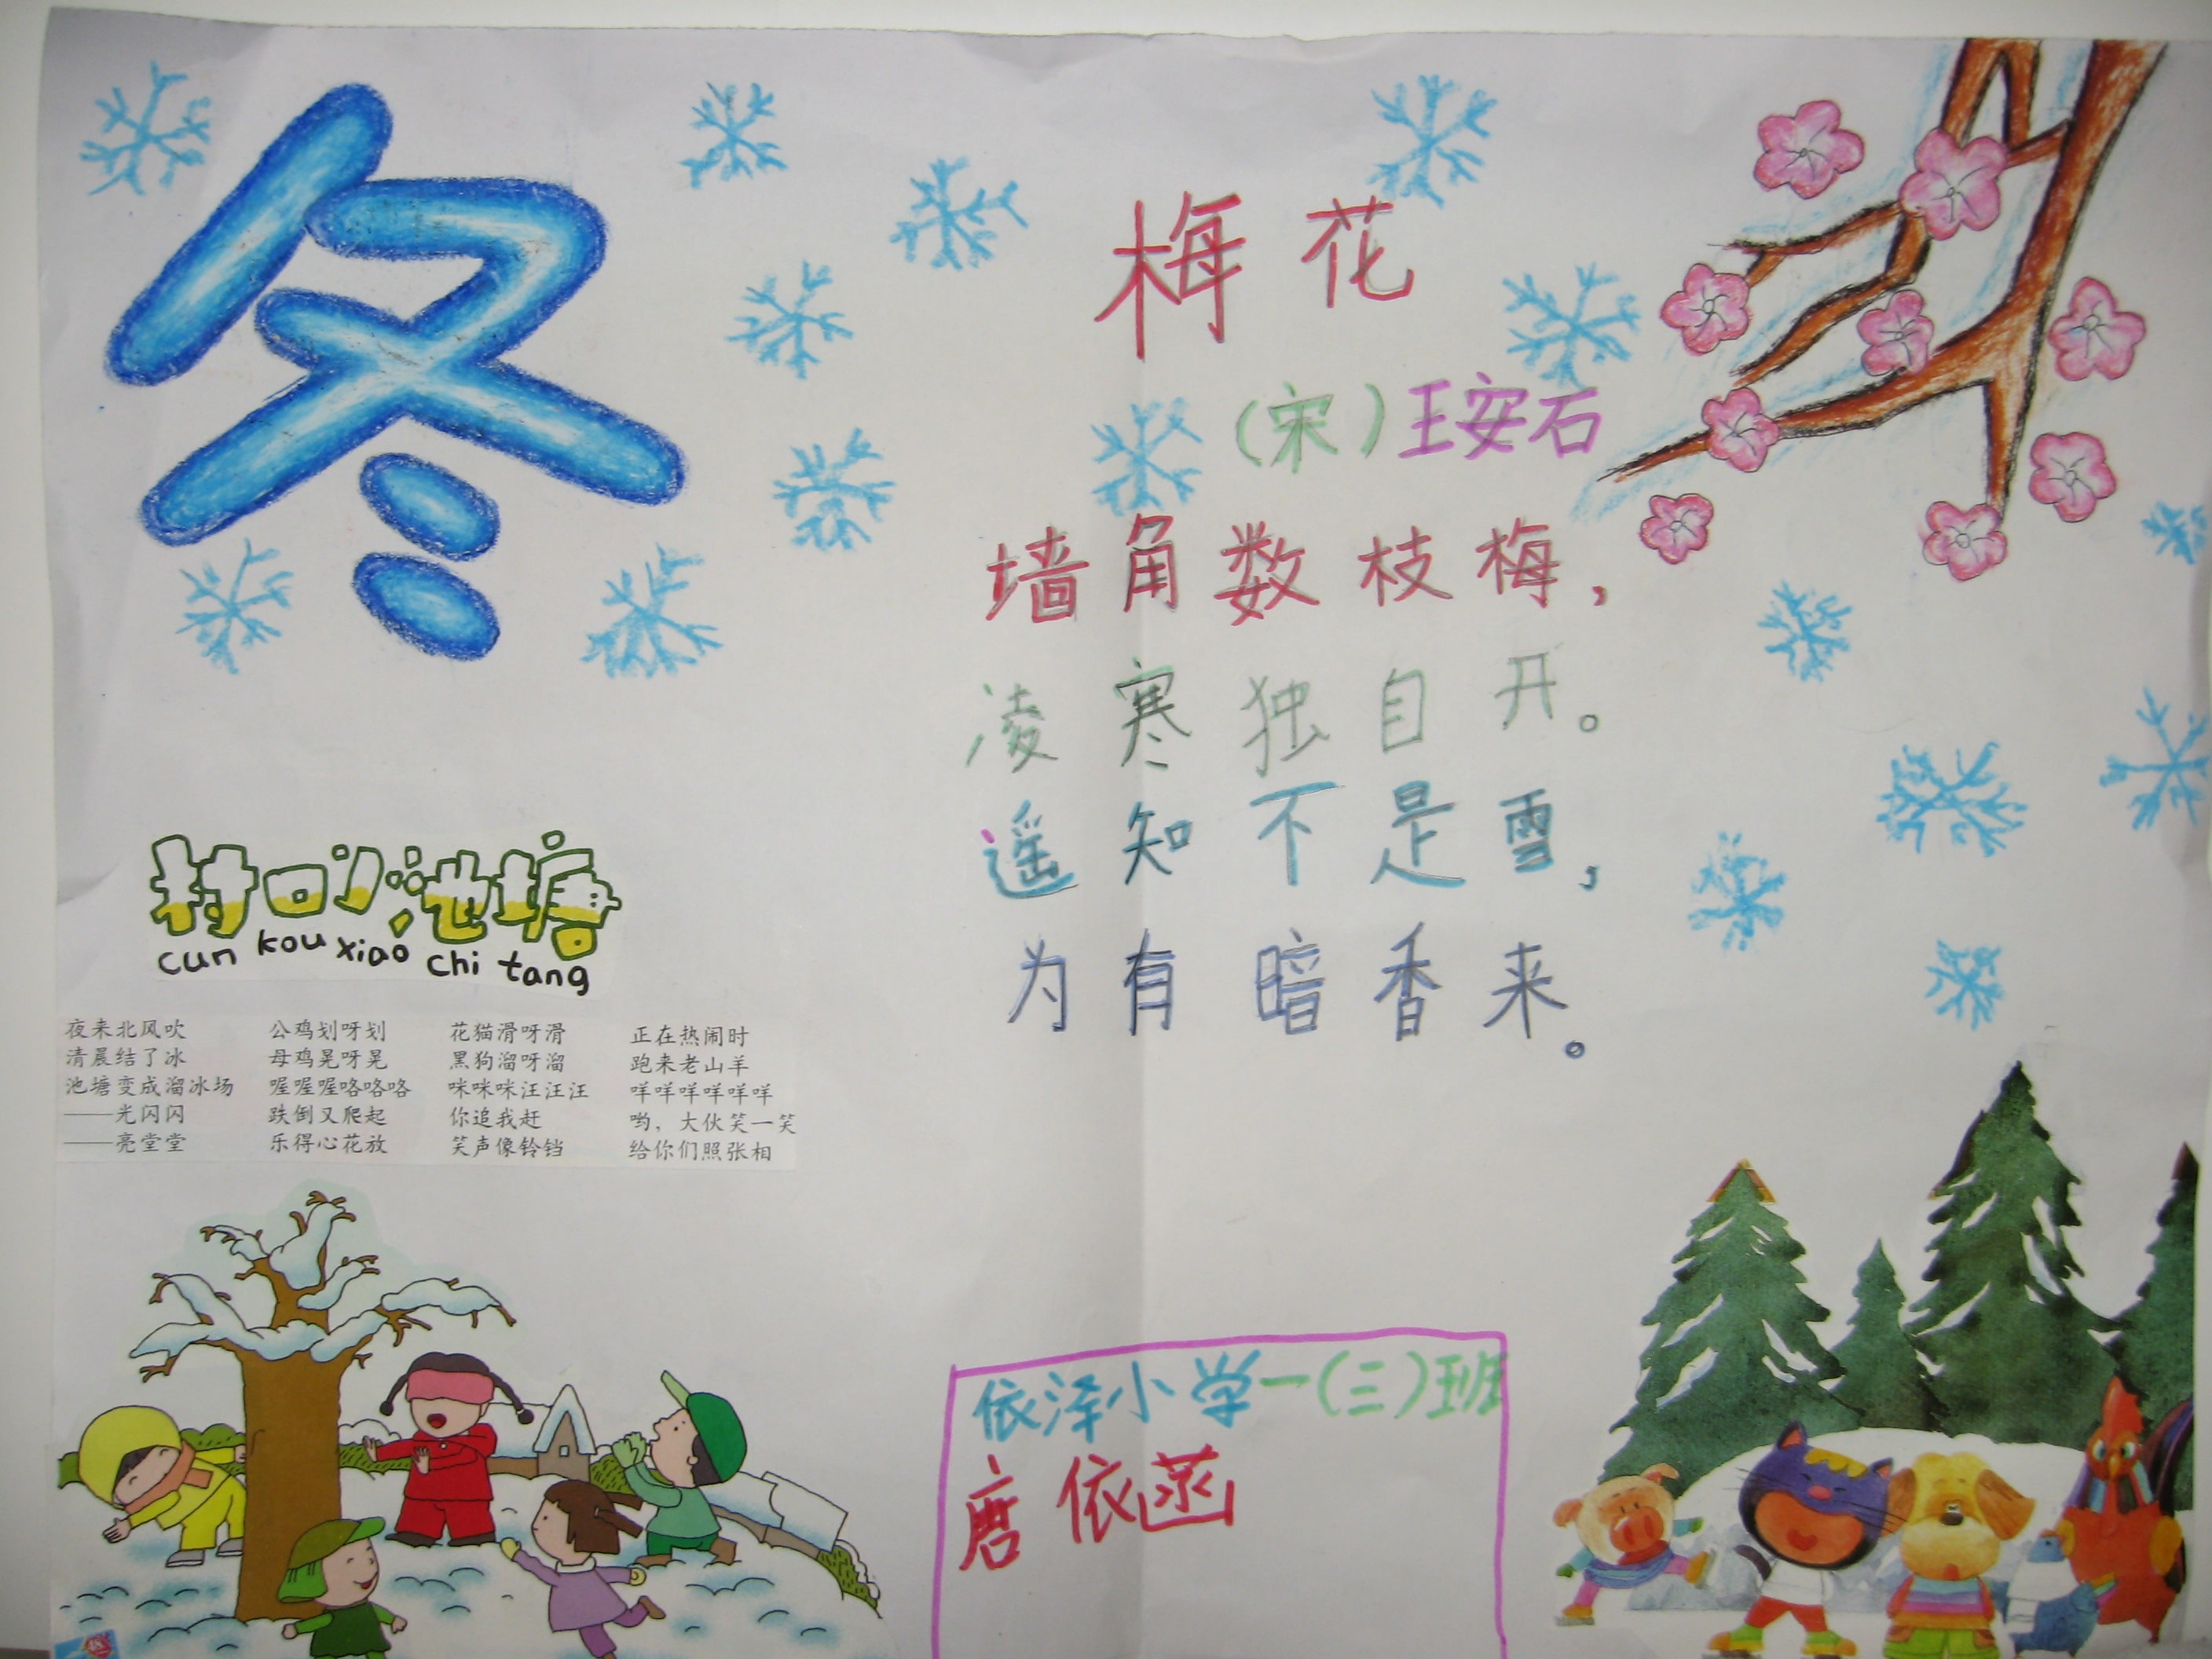 冬
梅花
（宋）王安石
墙角数枝梅，
凌寒独自开。
遥知不是雪，
为有暗香来。
村口小池塘
cun kou xiao chi tang
夜来北风吹
清晨结了冰
池塘变成溜冰场
——光闪闪
——亮堂堂
公鸡划呀划
母鸡晃呀晃
喔喔喔咯咯咯
跌倒又爬起
乐得心花放
花猫滑呀滑
黑狗溜呀溜
咪咪咪汪汪汪
你追我赶
笑声像铃铛
正在热闹时
跑来老山羊
咩咩咩咩咩咩
哟，大伙笑一笑
给你们照张相
依泽小学一（三）班
唐依菡